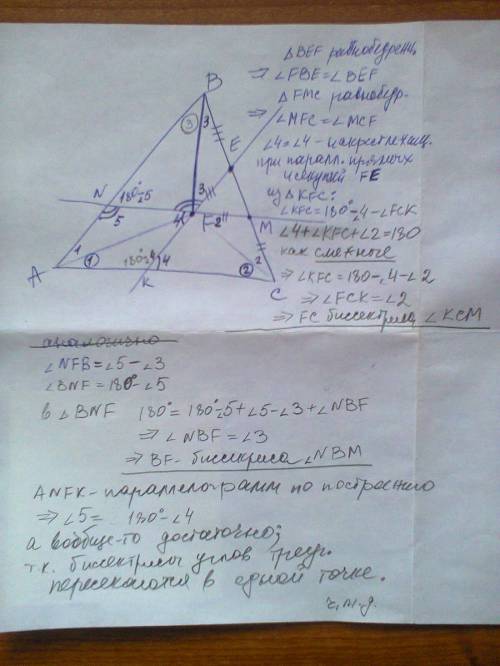 B
3
3
E
N
180°-∠5
5
3
4
F
2
M
1
1
A
180°-∠4
4
K
2
2
C
△BEF равнобедрен.
⇒ ∠FBE=∠BEF
△FMC равнобедр-
⇒ ∠MFC=∠MCF
∠4=∠4 - накрест лежащ.
при паралл. прямых
и секущей FE
из △KFC:
∠KFC=180°-∠4-∠FCK
∠4+∠KFC+∠2=180
как смежные
⇒ ∠KFC=180-∠4-∠2
⇒ ∠FCK=∠2
⇒ FC биссектриса ∠KCM
аналогично
∠NFB=∠5-∠3
∠BNF=180°-∠5
в ∠BNF 180°=180°-∠5+∠5-∠3+∠NBF
⇒ ∠NBF=∠3
⇒ BF- биссекриса ∠NBM
ANFK-параллелограмм по построению
⇒ ∠5= 180°-∠4
а вообще-то достаточно;
т.к. биссектрисы углов треуг.
пересекаются в одной точке.
ч.т.д.